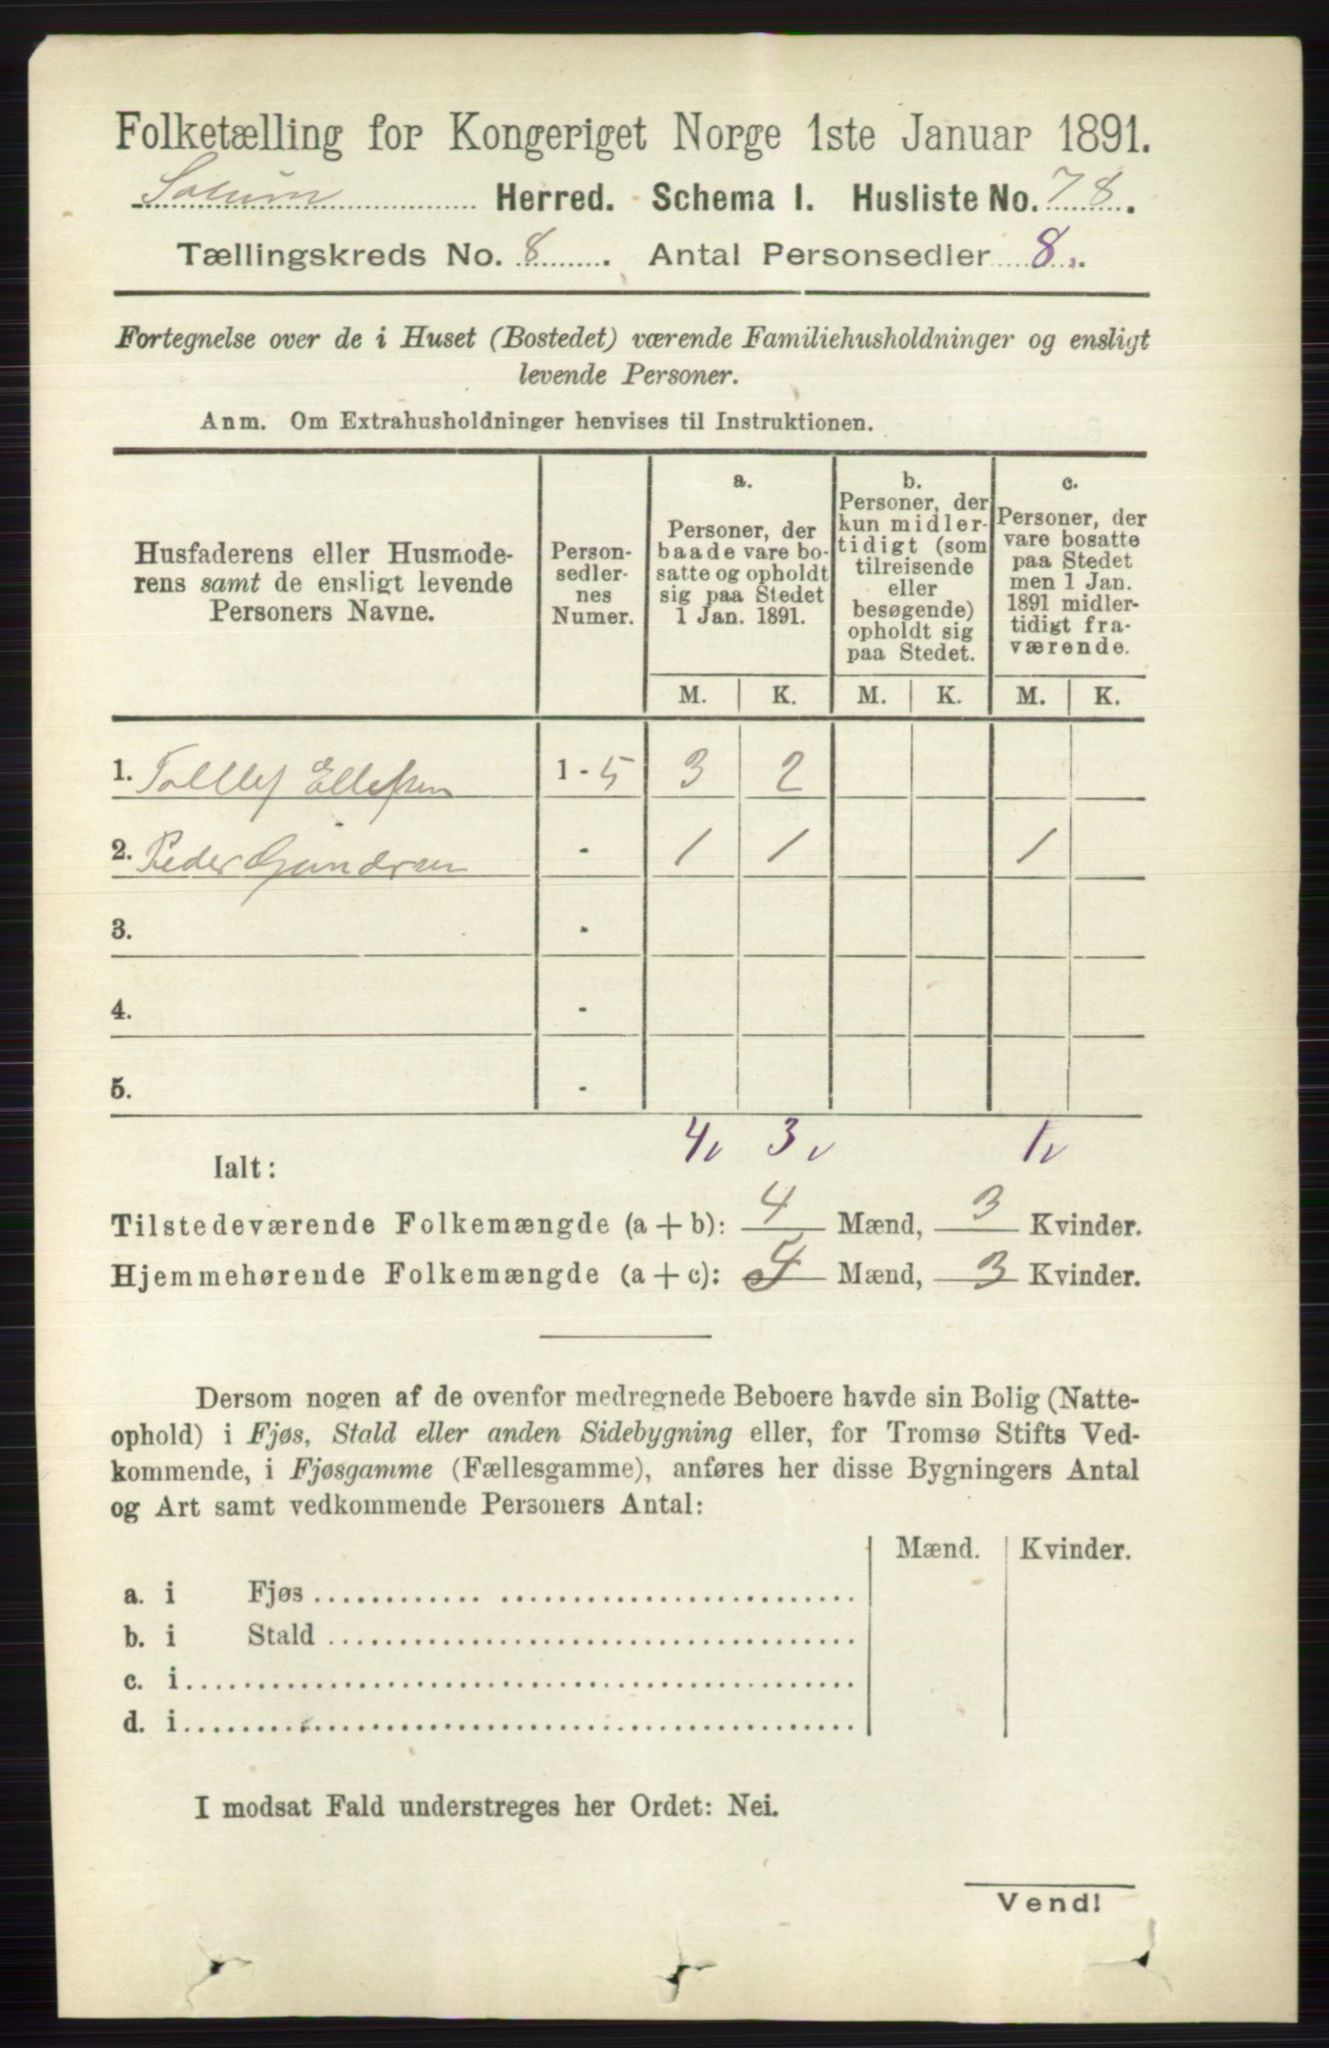 Folketælling for Kongeriget Norge 1ste Januar 1891.
Solum Herred. Schema I. Husliste No. 78.
Tællingskreds No. 8. Antal Personsedler 8.
Fortegnelse over de i Huset (Bostedet) værende Familiehusholdninger og ensligt
levende Personer.
Anm. Om Extrahusholdninger henvises til Instruktionen.
Husfaderens eller Husmoderens samt de ensligt levende Personers Navne.
Personsedlernes Numer.
a.
Personer, der baade vare bosatte og opholdt sig paa Stedet 1 Jan. 1891.
b.
Personer, der kun midlertidigt (som tilreisende eller besøgende) opholdt sig paa Stedet.
c.
Personer, der vare bosatte paa Stedet men 1 Jan. 1891 midlertidigt fraværende.
M. K. M. K. M. K.
1. Tollef Ellefsen 1 - 5 3 2
2. Peder - 1 1 1
3. -
4. -
5. -
4 3 1
Ialt:
Tilstedeværende Folkemængde (a + b): 4 Mænd, 3 Kvinder.
Hjemmehørende Folkemængde (a + c): 5 Mænd, 3 Kvinder.
Dersom nogen af de ovenfor medregnede Beboere havde sin Bolig (Natte-
ophold) i Fjøs, Stald eller anden Sidebygning eller, for Tromsø Stifts Ved-
kommende, i Fjøsgamme (Fællesgamme), anføres her disse Bygningers Antal
og Art samt vedkommende Personers Antal:
Mænd. Kvinder.
a. i Fjøs
b. i Stald
c. i
d. i
I modsat Fald understreges her Ordet: Nei.
Vend!